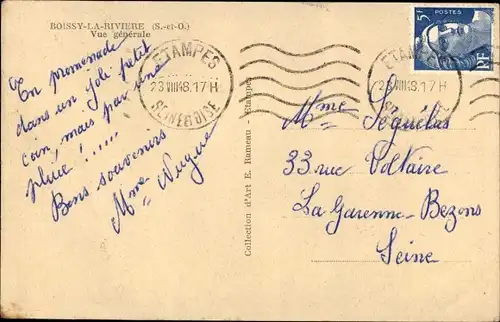 BOISSY-LA-RIVIERE (S.-et-O.)
Vue générale
En promenade
dans un joli petit
coin, mais par une
pluie !.....
Bons souvenirs
Mme
ETAMPES
23 VIII 48. 17 H
SEINE & OISE
ETAMPES
23 VIII 48. 17 H
5F
POSTES
RF
Collection d'Art E. Rameau - Etampes
Mme Séquélas
33 rue Voltaire
La Garenne-Bezons
Seine